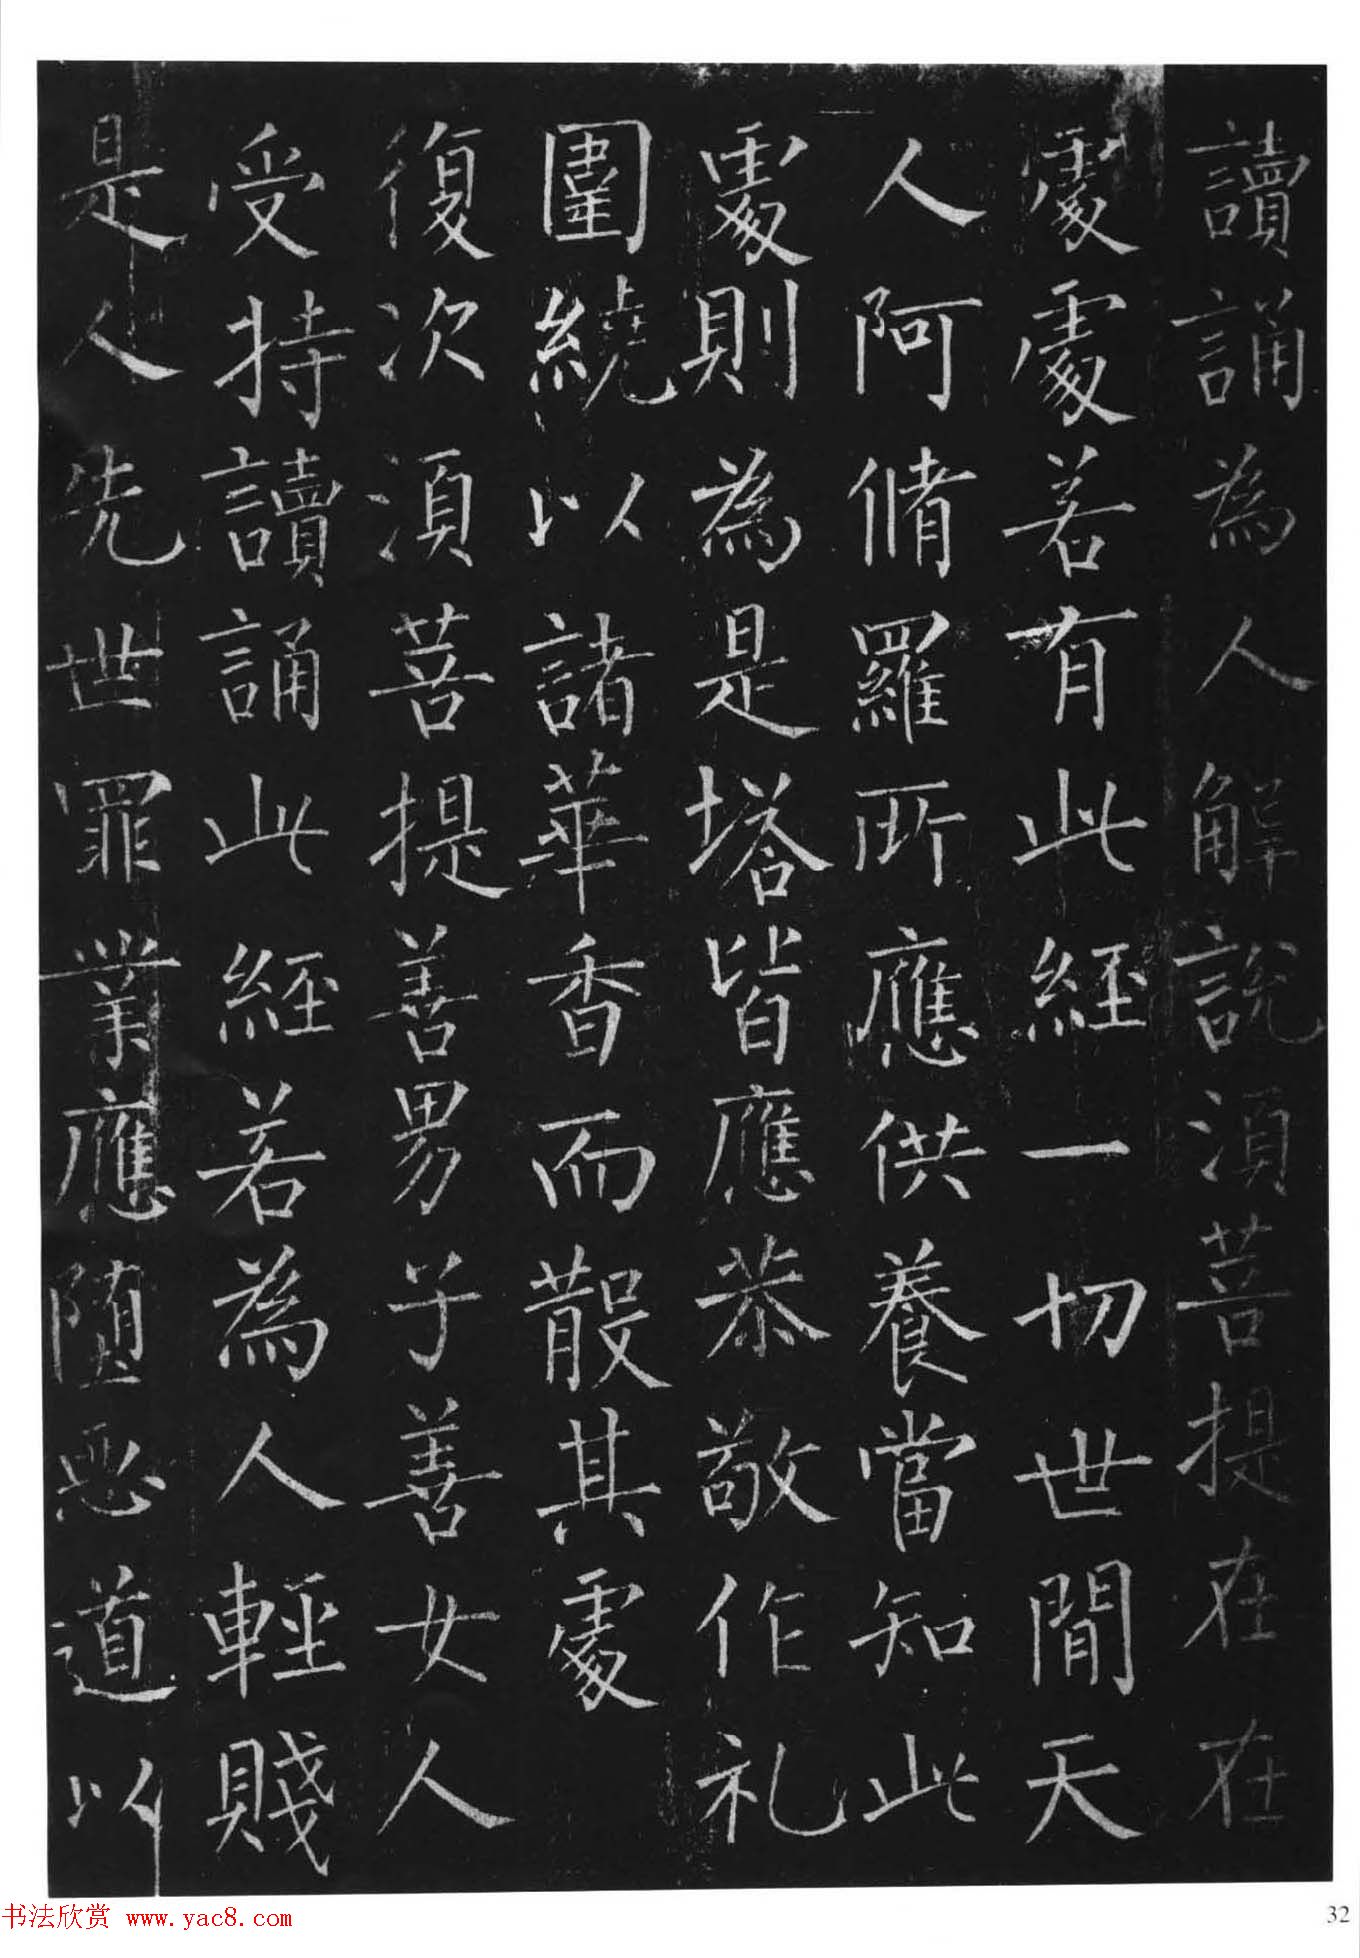 讀誦為人解說須菩提在在
處處若有此經一切世間天
人阿脩羅所應供養當知此
處則為是塔皆應恭敬作礼
圍繞以諸華香而散其處
復次須菩提善男子善女人
受持讀誦此經若為人輕賤
是人先世罪業應墮惡道以
书法欣赏 www.yac8.com
32